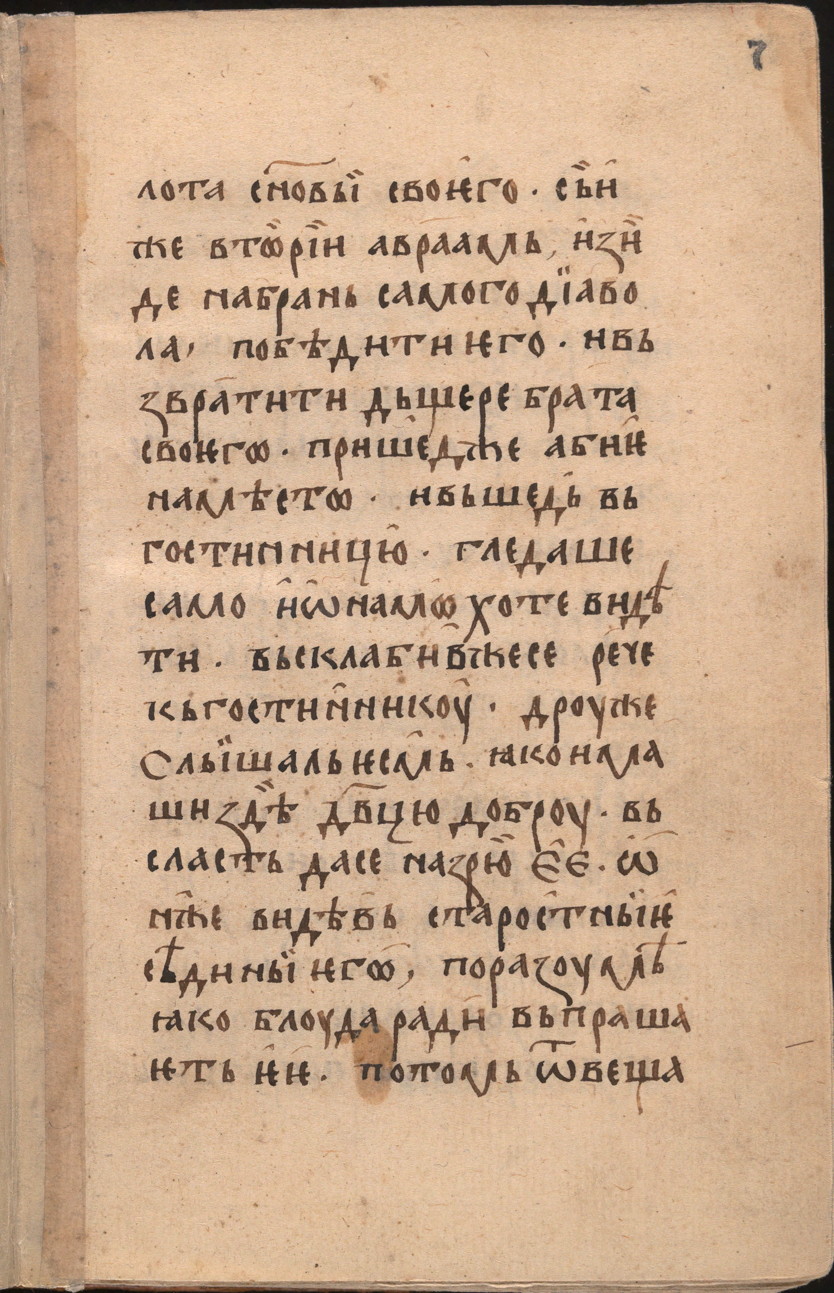 7
лота сн҃овыї своѥго · сьи
же втѡрїи авраамь, изи
де набрань самого дїаво
ла, побѣдити ѥго · ивь
звратити дьщере брата
своѥгѡ · пришедже абиѥ
намѣстѡ · ивьшедь вь
гостинницю · гледаше
сѣмо иѡнамѡ хоте видѣ
ти · вьсклабивжесе рече
кьгостинникоу · дроуже
Слыїшаль ѥсмь · ꙗко има
ши здѣ дв҃цю доброу · вь
сласть дасе назрю ѤЕ · ѡ
нже видѣвь старостныїѥ
сѣдиныї ѥгѡ, поразоумѣ
ꙗко блоуда ради вьпраша
ѥть ѥѥ · потомь ѿвеща